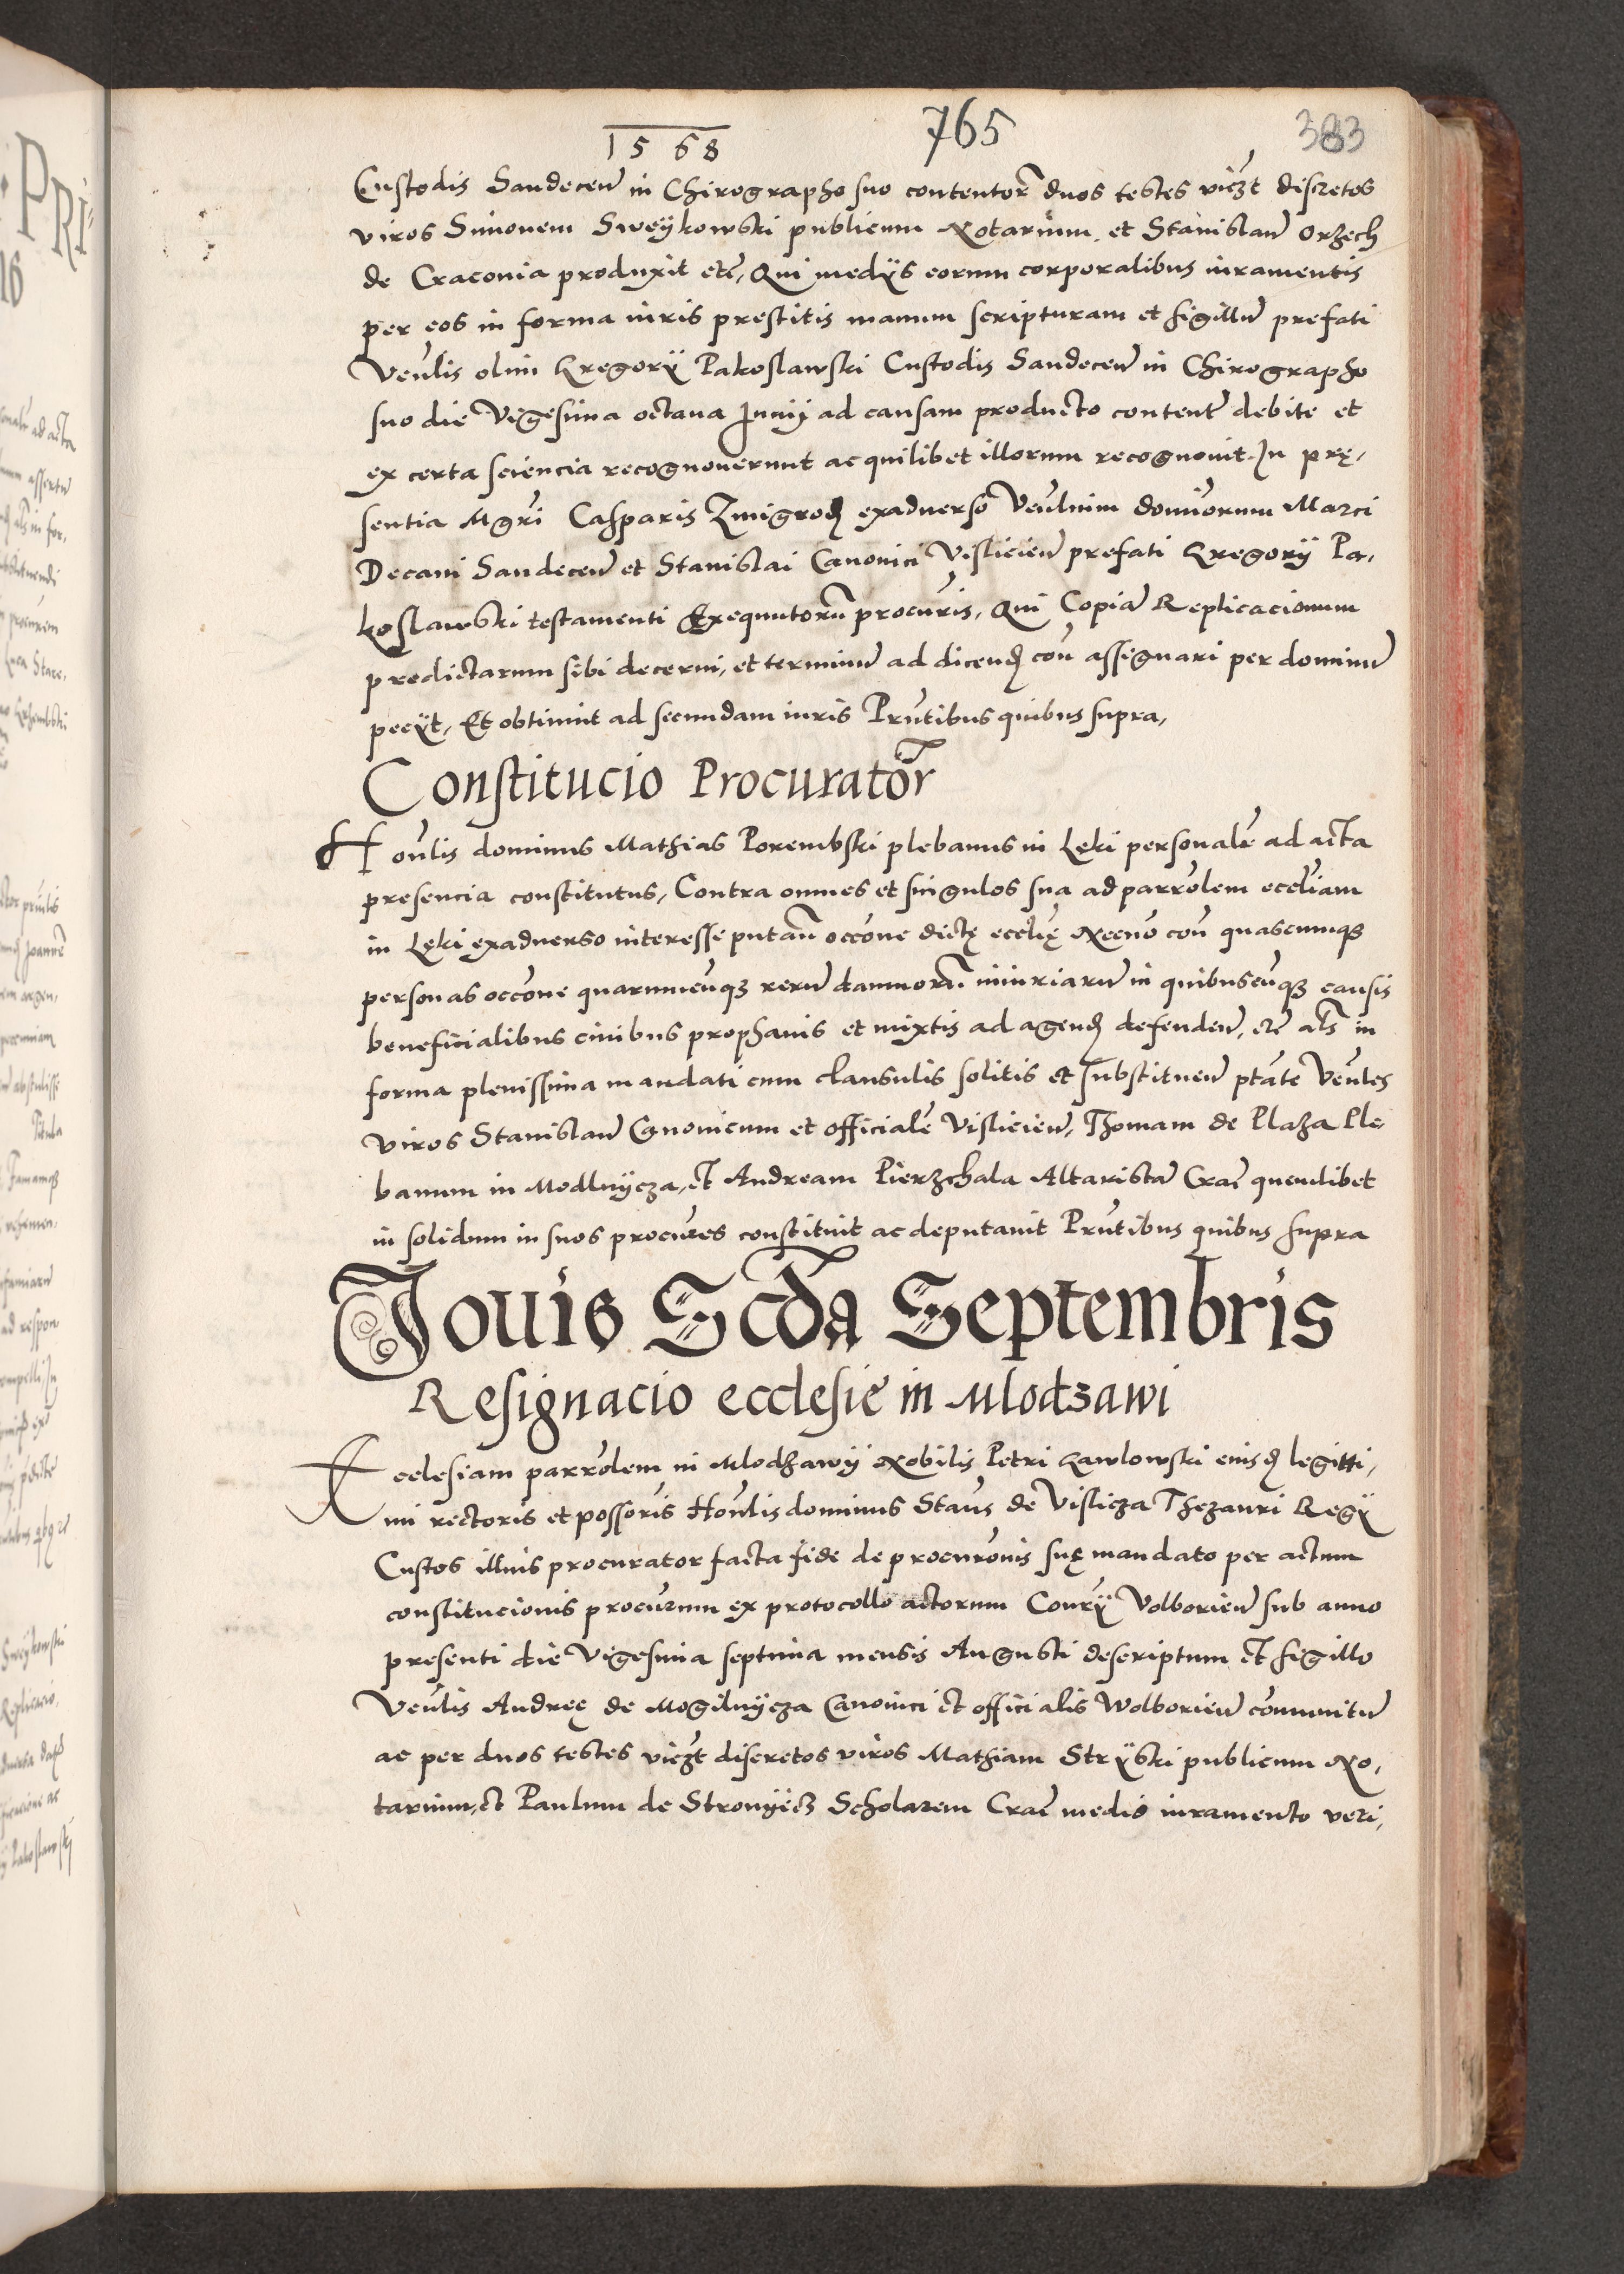 1568
765
383
Custodis Sandeceñ in Chirographo suo contentor̃ duos testes vicz̃t discretos
viros Simonem Sweÿkowski publicum Notarium et Stanislaũ Orzech
de Craconia produxit etc̃, Qui medÿs eorum corporalibus iuramentis
per eos in forma iuris prestitis manum scripturam et sigillũ prefati
Veñlis olim Gregorÿ Pakoslawski Custodis Sandeceñ in Chirographo
suo die Vigesima octaua Junÿ ad causam producto content̃ debite et
ex certa sciencia recognouerunt ac quilibet illorum recognouit. In prę,
sentia Mgr̃i Casparis Zmigrod exaduerso Veñlium dominorum Marci
Decani Sandeceñ et Stanislai Canonici Vislicieñ prefati Gregorÿ Pa,
koslawski testamenti Exequutorũ procur̃is, Qui Copiã Replicacionum
predictarum sibi decerni, et terminũ ad dicend coñ assignari per dominũ
pecÿt, Et obtinuit ad secundam iuris Pñtibus quibus supra,
Constitucio Procurator̃
Hoñlis dominus Mathias Porembski plebanus in Łęki personalr̃ ad acta
presencia constitutus, Contra omnes et singulos sua ad parrolem̃ eccl̃iam
in Łęki exaduerso interesse putañ occõne dictę eccl̃ię necñ coñ quascumqꝫ
personas occõne quarumcũqꝫ rerũ damnorũ iniuriarũ in quibuscũqꝫ causis
beneficialibus ciuibus prophanis et mixtis ad agend defendeñ, etc̃ al̃s in
forma plenissima mandati cum clausulis solitis et substitueñ ptãte Veñles
viros Stanislaũ Canonicum et officialẽ Vislicieñ, Thomam de Plaza Ple
banum in Modlnÿcza, et Andream Pierzchala Altaristã Crac̃ quemlibet
in solidum in suos procur̃es constituit ac deputauit Pñtibus quibus supra
Jouis Scd̃a Septembris
Resignacio ecclesie in Mlodzawi
Ecclesiam parrolem̃ in Mlodzawÿ Nobilis Petri Gawlowski eiusd legitti,
mi rectoris et possor̃is Hoñlis dominus Stañs de Vislicza Thezauri Regÿ
Custos illius procurator facta fide de procurõnis suę mandato per actum
constitucionis procur̃um ex protocollo actorum Consr̃ÿ Volborieñ sub anno
presenti die Vigesima septima mensis Augusti descriptum et sigillo
Veñlis Andreę de Mogilnÿcza Canonici et officialis Wolborieñ cõmunitũ
ac per duos testes vicz̃t discretos viros Mathiam Strÿski publicum No,
tarium, et Paulum de Stronÿecz Scholarem Crac̃ medio iuramento veri,